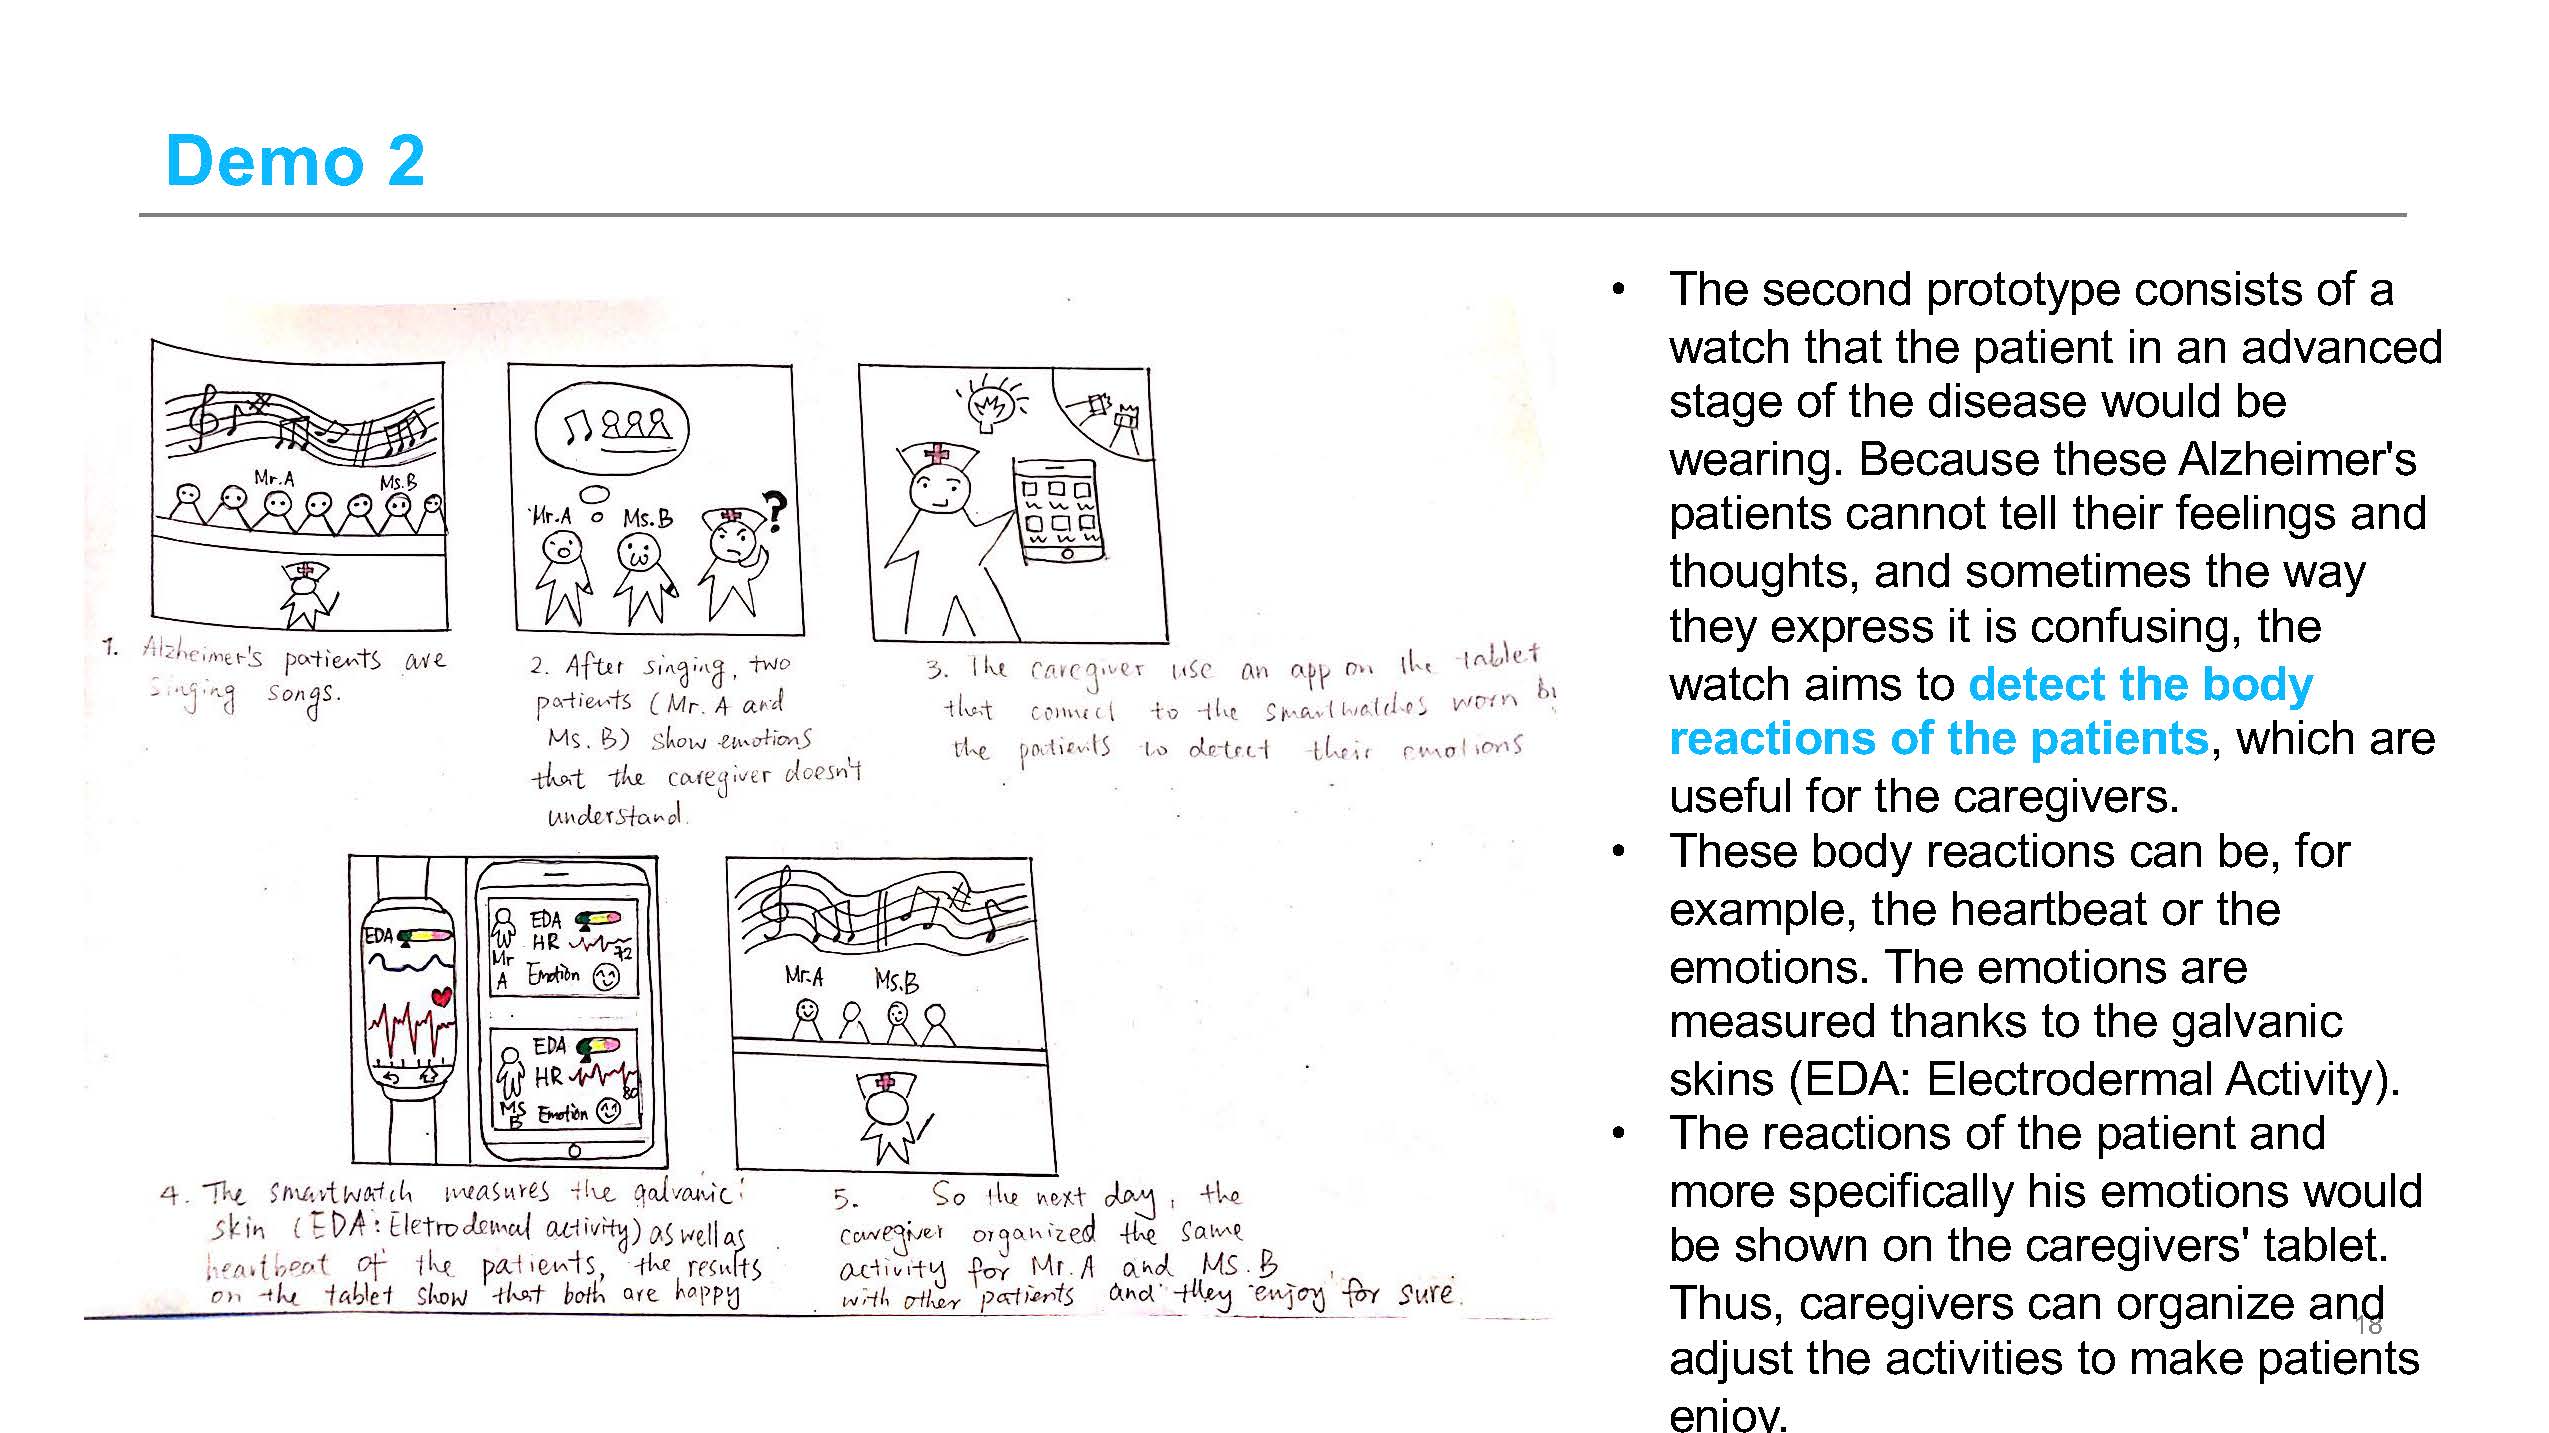 Demo 2
Mr.A
Ms.B
Mr.A
Ms.B
?
1. Alzheimer's patients are
singing songs.
2. After singing, two
patients (Mr. A and
Ms. B) show emotions
that the caregiver doesn't
understand.
3. The caregiver use an app on the tablet
that connect to the smartwatches worn by
the patients to detect their emotions
EDA
EDA
HR
72
Mr
A
Emotion
EDA
HR
80
MS
B
Emotion
Mr.A
Ms.B
4. The smartwatch measures the galvanic
skin (EDA: Eletrodemal activity) as well as
heartbeat of the patients, the results
on the tablet show that both are happy
5. So the next day, the
caregiver organized the same
activity for Mr. A and MS. B
with other patients and they enjoy for sure.
• The second prototype consists of a
watch that the patient in an advanced
stage of the disease would be
wearing. Because these Alzheimer's
patients cannot tell their feelings and
thoughts, and sometimes the way
they express it is confusing, the
watch aims to detect the body
reactions of the patients, which are
useful for the caregivers.
• These body reactions can be, for
example, the heartbeat or the
emotions. The emotions are
measured thanks to the galvanic
skins (EDA: Electrodermal Activity).
• The reactions of the patient and
more specifically his emotions would
be shown on the caregivers' tablet.
Thus, caregivers can organize and
adjust the activities to make patients
enjoy.
18